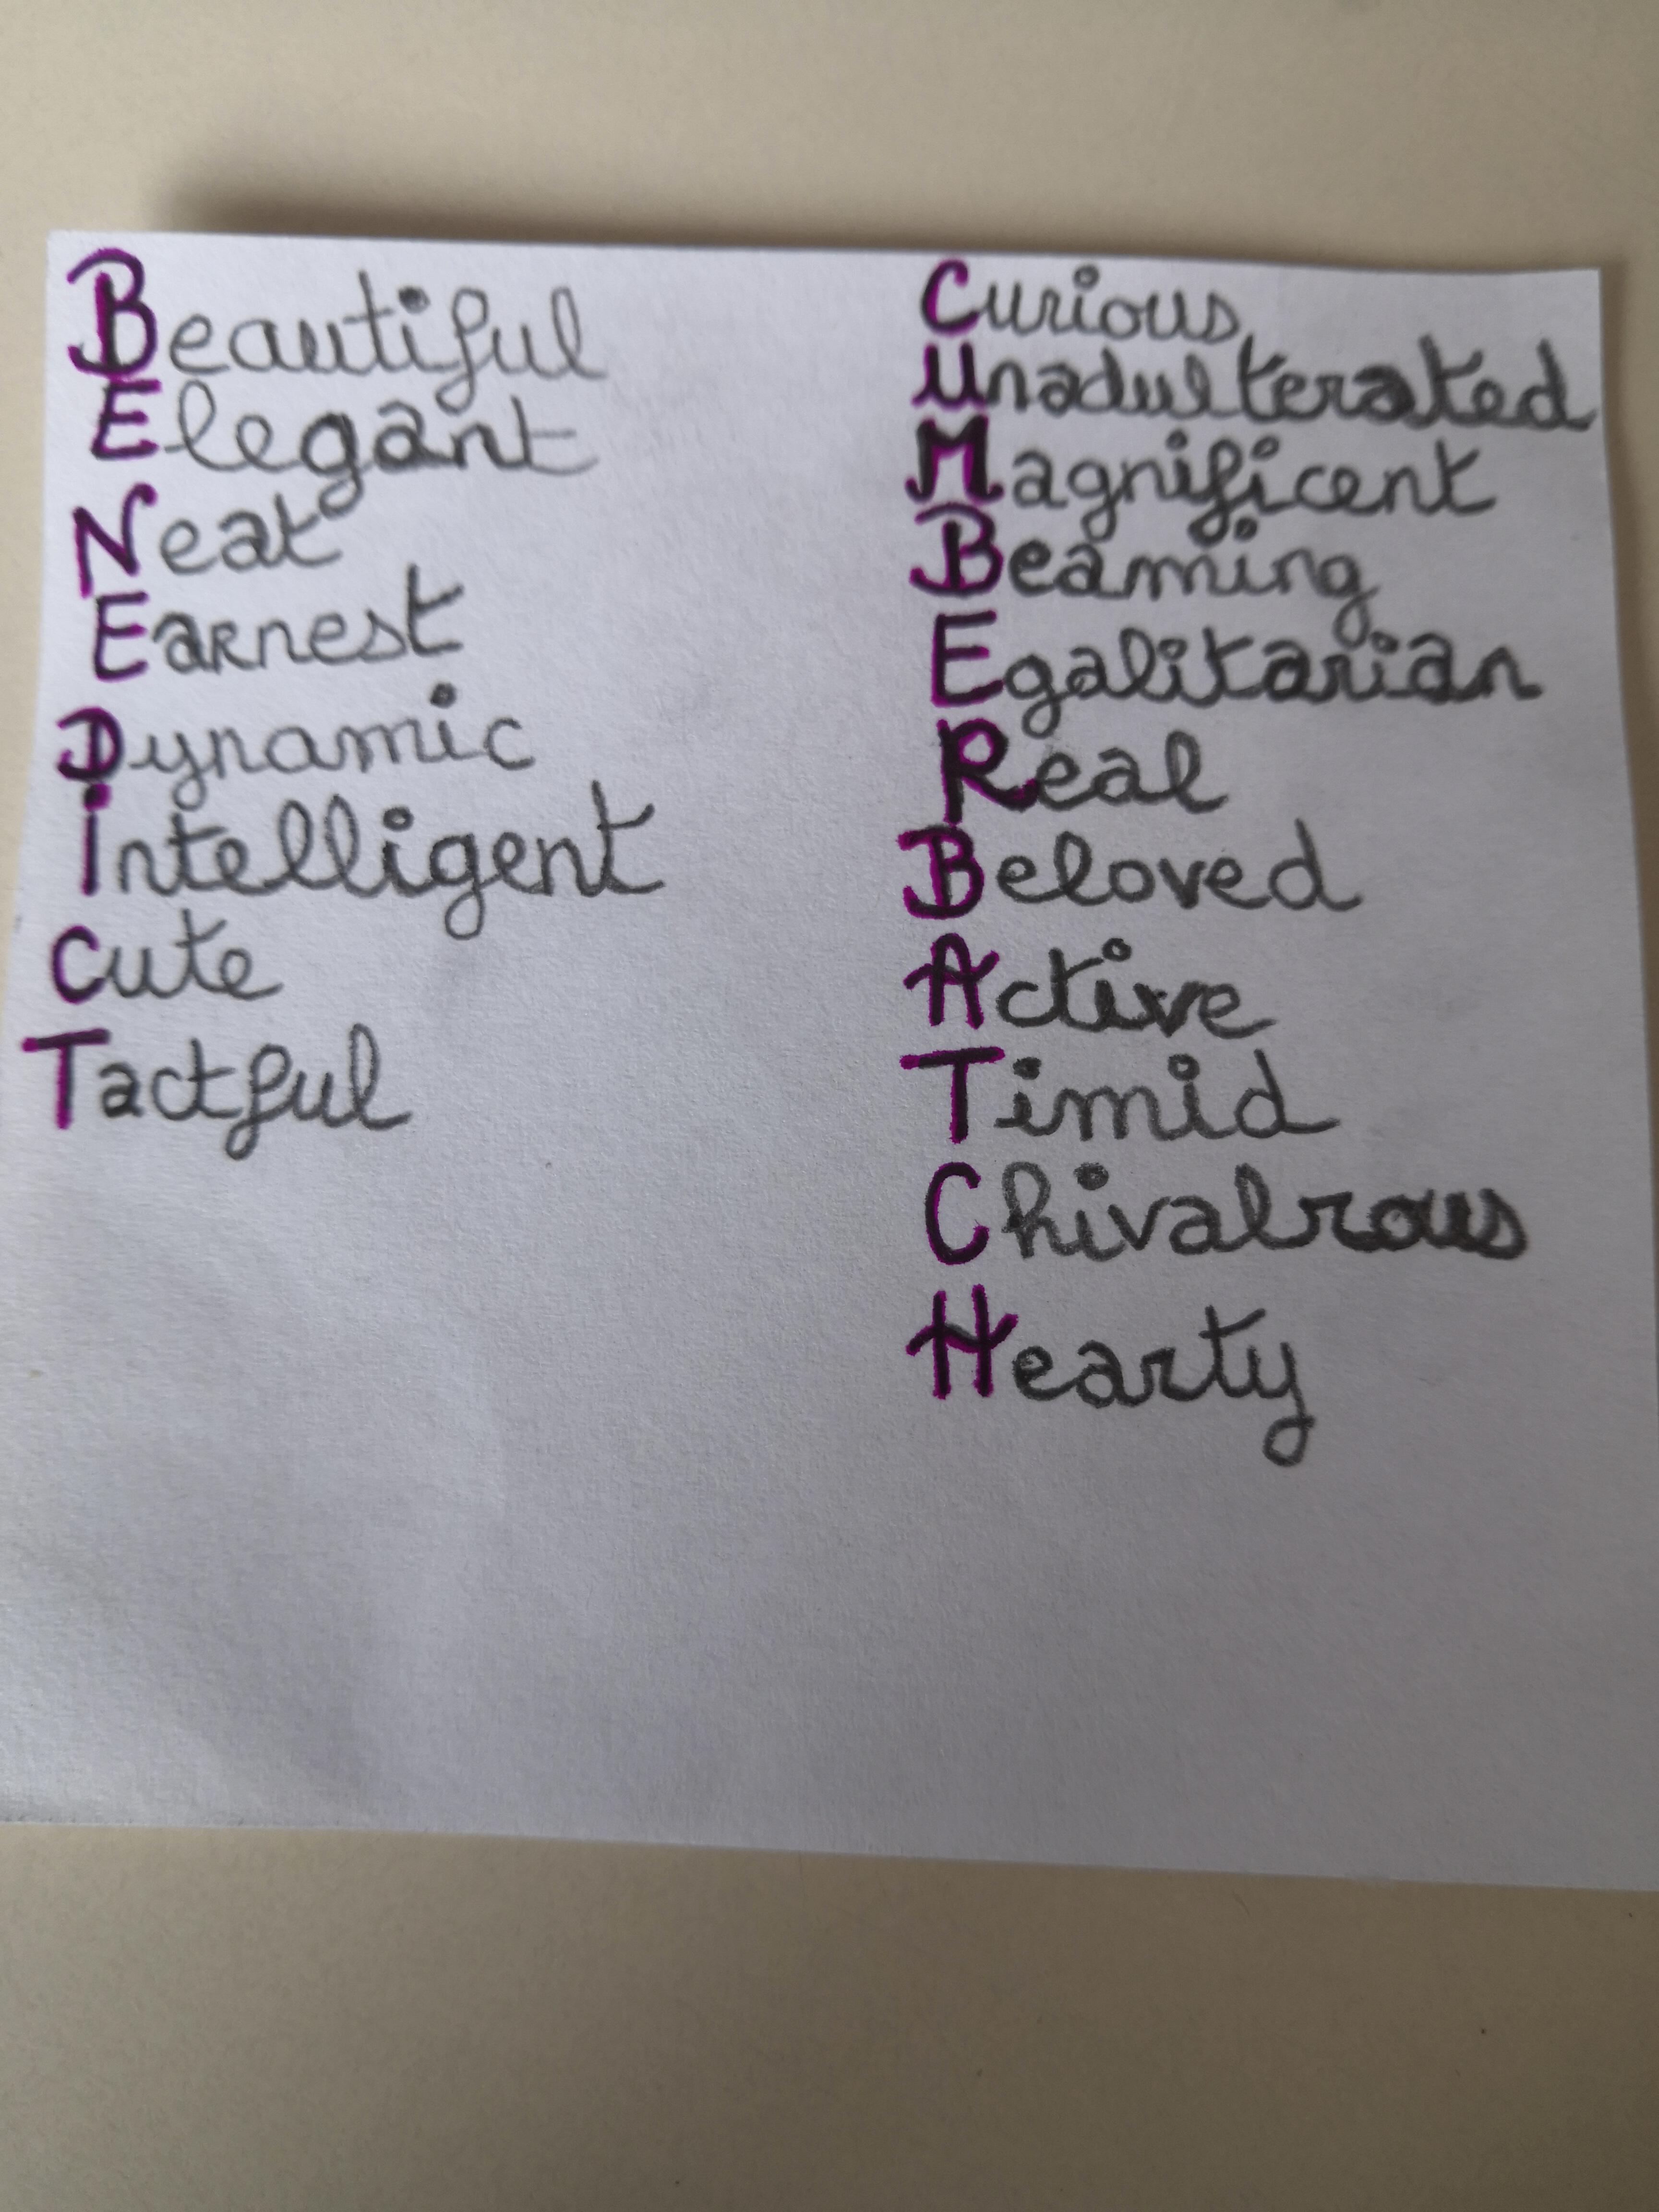 Beautiful
Elegant
Neat
Earnest
Dynamic
intelligent
Cute
Tactful
Curious
Unadulterated
Magnificent
Beaming
Egalitarian
Real
Beloved
Active
Timid
Chivalrous
Hearty